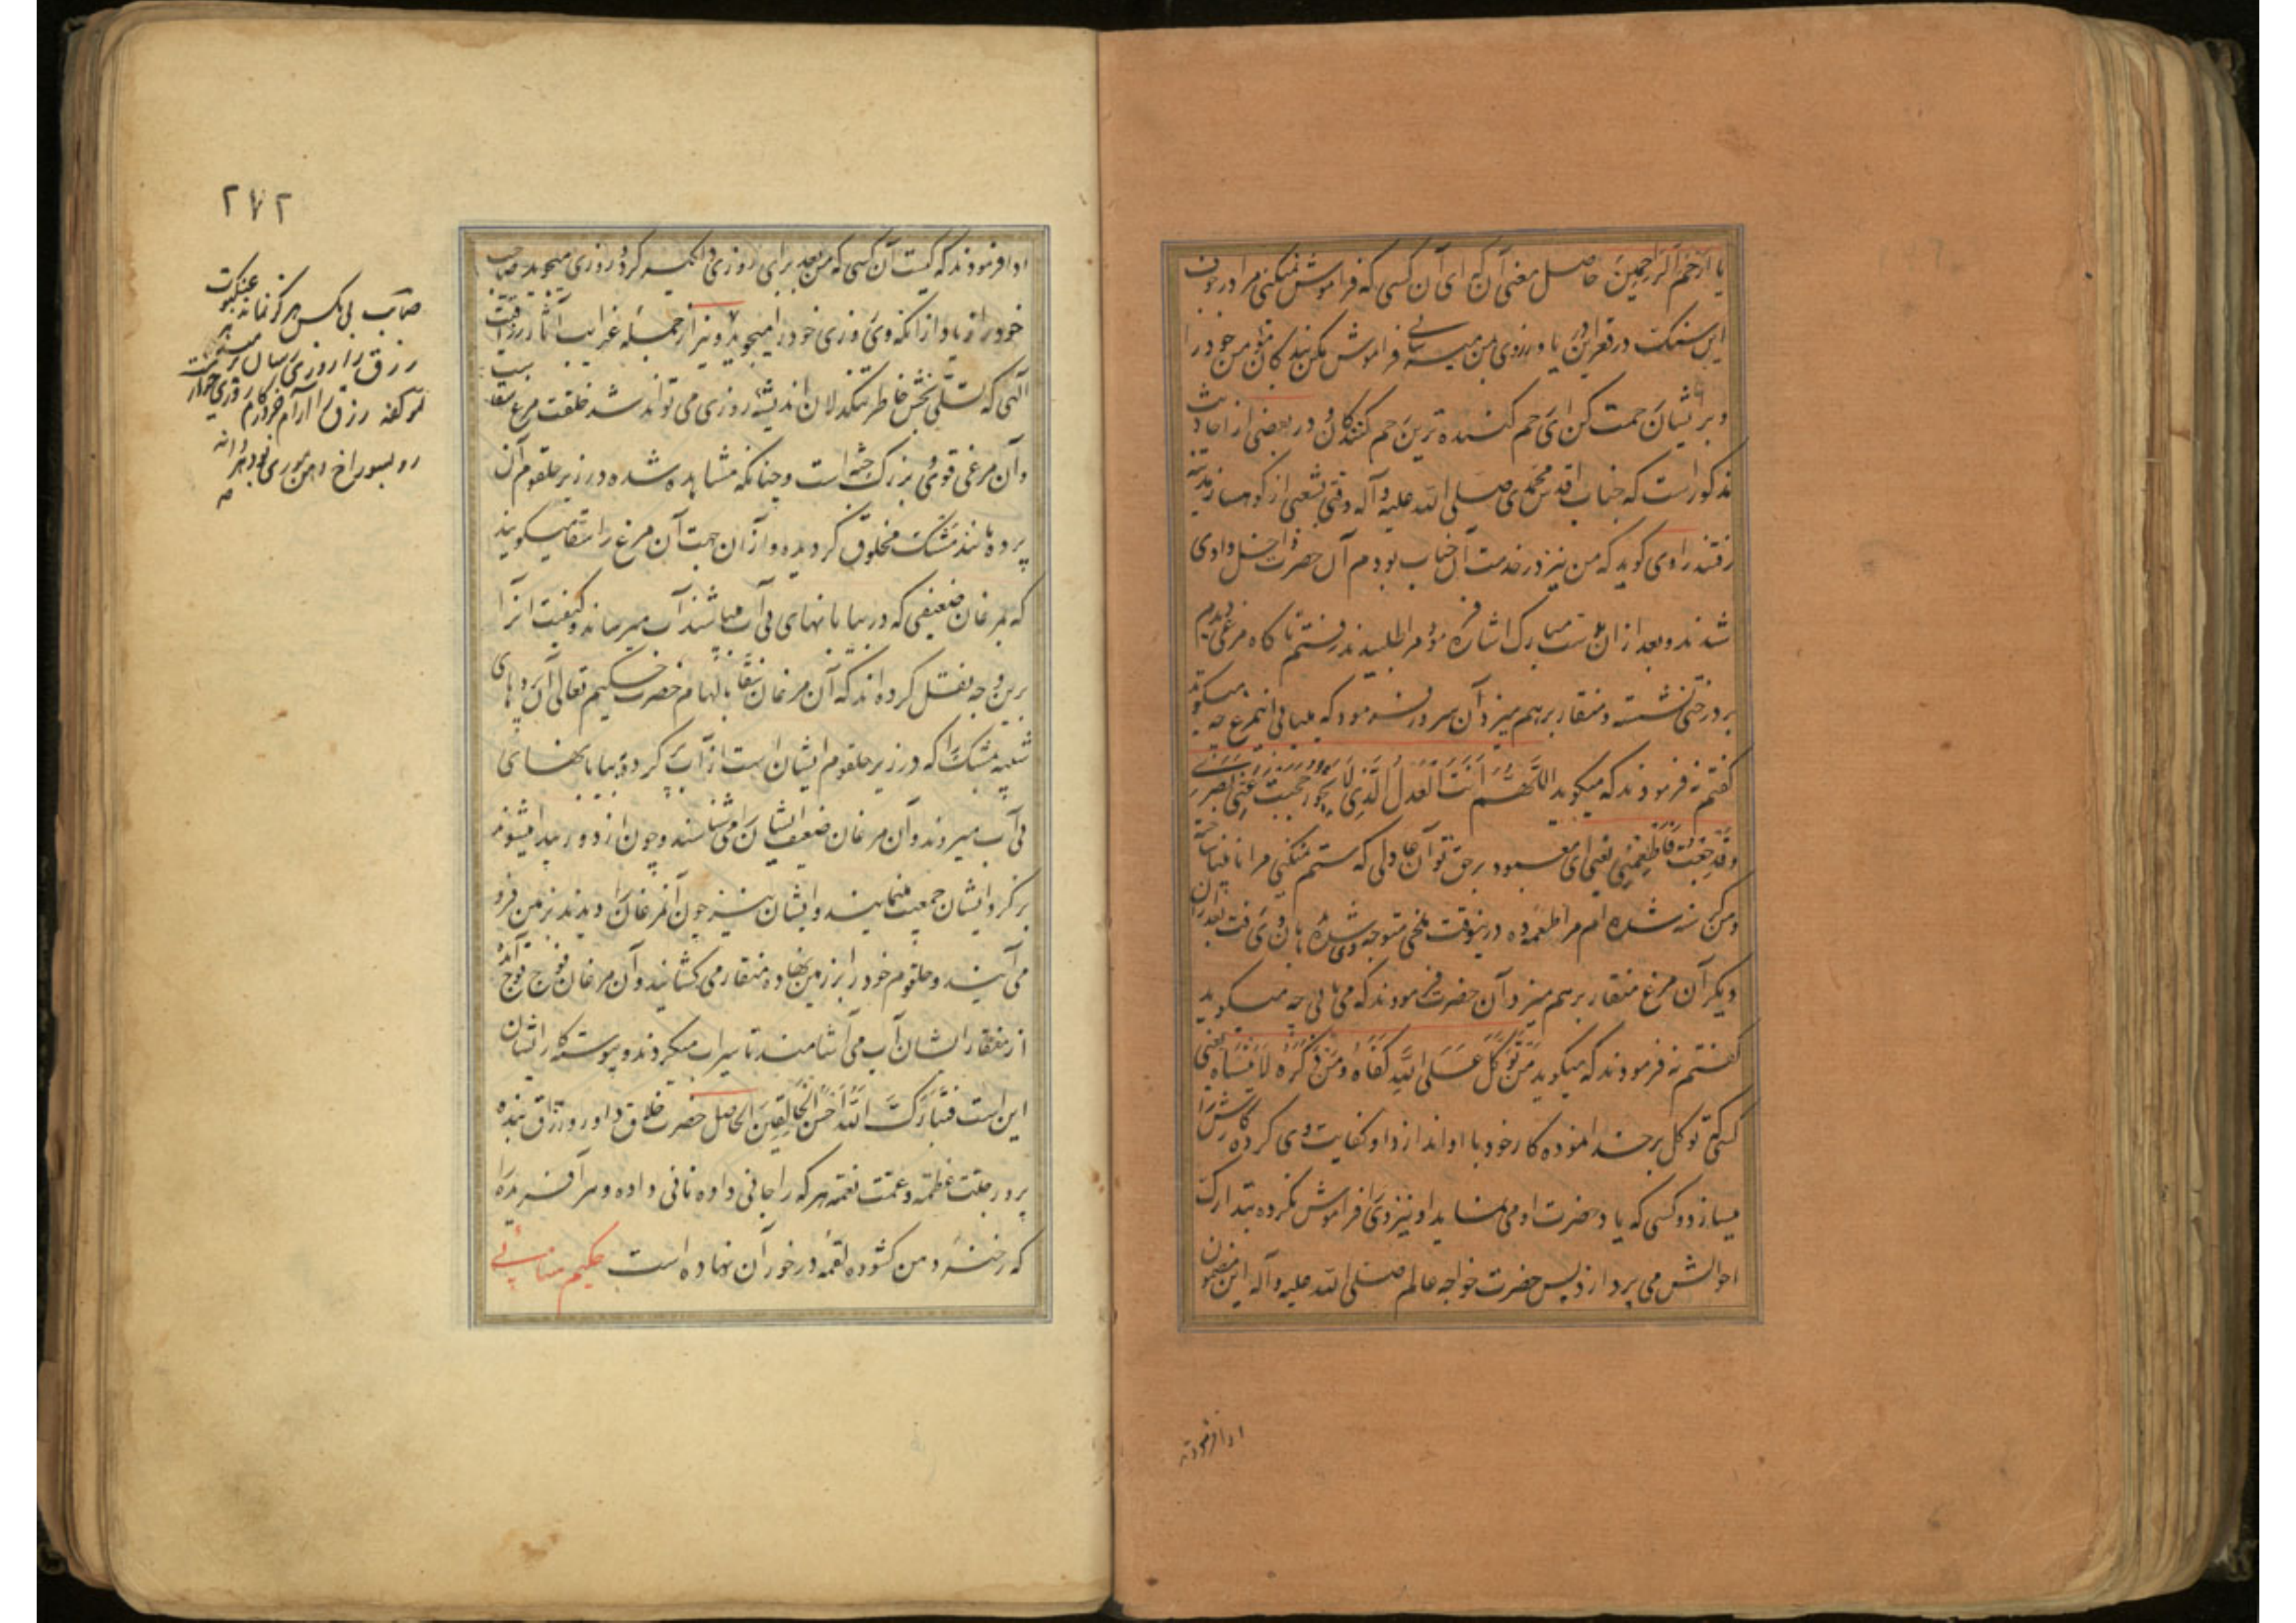 یا ارحم الراحمین حاصل معنی آن که ای آن کسی که فراموش نمیکنی مرا در جوف
این سنک در قعر این یا و روزی من میرسانی فراموش مکن بندکان مؤمن خود را
و بر ایشان رحمت کن ای رحم کننده ترین رحم کنندکان و در بعضی از احادیث
مذکور است که جناب اقدس محمدی صلی الله علیه وآله وقتی بشعبی از کوهسار مدینه
رفتند راوی کوید که من نیز در خدمت آن جناب بودم آن حضرت داخل وادی
شدند و بعد از آن بدست مبارک اشاره فرموده مرا طلبیدند رفتم ناکاه مرغی دیدم
بر درختی نشسته و منقار بر هم میزد آن سرور فرمود که میدانی اینمرغ چه میکوید
کفتم نه فرمودند که میکوید اللهم انت العدل الذی لا یجور حجبت عنی بصری
و قد جعت فاطعمنی یعنی ای معبود بر حق تو آن عادلی که ستم نمیکنی مرا نابینا ساخته
و من کرسنه شده ام مرا طعمه ده درینوقت ملخی متوجه وی شده بدهان وی رفت بعد از آن
دیکر آن مرغ منقار بر هم میزد آن حضرت فرمودند که میدانی چه میکوید
کفتم نه فرمودند که میکوید من توکل علی الله کفاه و من ذکره لا ینساه یعنی
کسی که توکل بر خدا نموده کار خود با او اندازد او کفایت وی کرده کارش را
میسازد و کسی که یاد حضرت او می نماید او نیز وی را فراموش نکرده بتدارک
احوالش می پردازد پس حضرت خواجه عالم صلی الله علیه وآله این مضمون
ادا فرمودند
۲۷۲
ادا فرمودند که کیست آن کسی که من بعد برای روزی دلکیر کردد روزی میجوید صاحب
خود را زیاد از آنکه وی روزی خود را میجوید و نیز از جمله غرایب آثار رزاقیت
الهی که تسلی بخش خاطر تنکدلان اندیشه روزی می تواند شد خلقت مرغ سقا ست
و آن مرغی قوی و بزرک جثه است و چنانکه مشاهده شده در زیر حلقوم آن
پرده مانند مشک مخلوق کردیده و از آن جهت آن مرغ را سقا میکویند
که بمرغان ضعیفی که در بیابانهای بی آب میباشند آب میرساند و کیفیت آنرا
برین وجه نقل کرده اند که آن مرغان سقا بالهام حضرت حکیم تعالی آن پردهای
شبیه بمشک را که در زیر حلقوم ایشان است از آب پر کرده به بیابانهای
بی آب میروند و آن مرغان ضعیف ایشان را می شناسند و چون از دور پیدا میشوند
بر کرد ایشان جمعیت مینمایند و ایشان نیز چون آنمرغان را دیدند بزمین فرو
می آیند و حلقوم خود را بر زمین نهاده منقار می کشایند و آن مرغان فوج فوج آمده
از منقار ایشان آب می آشامند تا سیراب میکردند و پیوسته کار ایشان
این است فتبارک الله احسن الخالقین الحاصل حضرت خلاق داور و رزاق بنده
پرور جلت عظمته و عمت نعمته هر که را جانی داده نانی داده و هر آفریده را
که رخنه دهن کشوده لقمه در خور آن نهاده است حکیم سنائی
صائب بی مکس هرکز نماند عنکبوت
رزق را روزی رسان پر میدهد
رو بسوراخ دهن موری نبود دانه